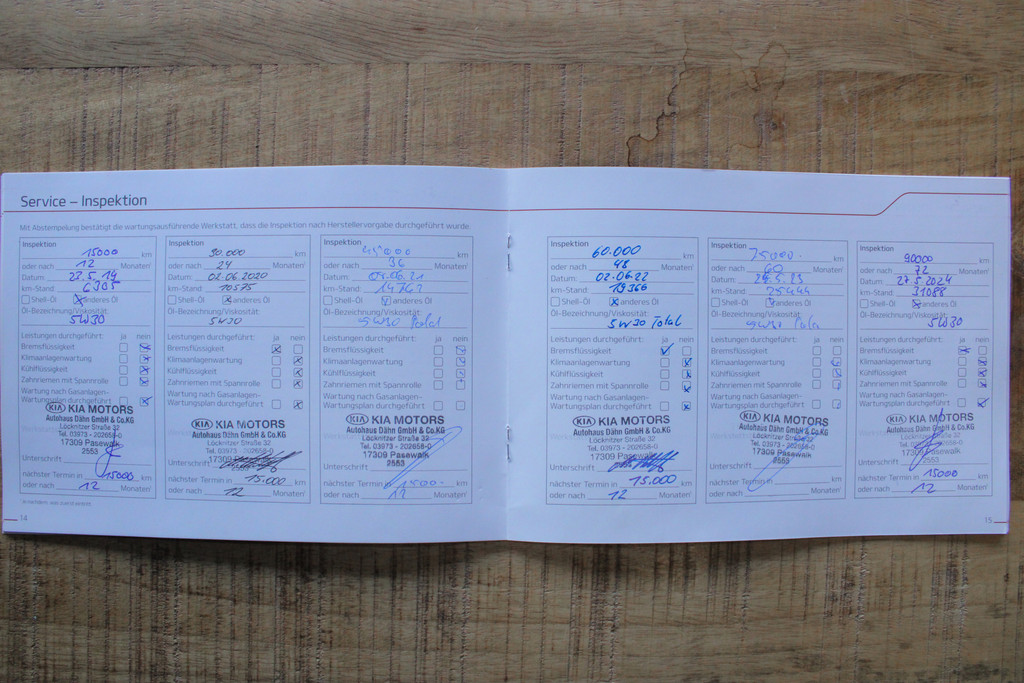 Service – Inspektion
Mit Abstempelung bestätigt die wartungsausführende Werkstatt, dass die Inspektion nach Herstellervorgabe durchgeführt wurde.
Inspektion
15000 km
oder nach 12 Monaten¹
Datum: 23.5.19
km-Stand: 6305
Shell-Öl anderes Öl
Öl-Bezeichnung/Viskosität:
5W30
Leistungen durchgeführt: ja nein
Bremsflüssigkeit
Klimaanlagenwartung
Kühlflüssigkeit
Zahnriemen mit Spannrolle
Wartung nach Gasanlagen-
Wartungsplan durchgeführt
KIA KIA MOTORS
Autohaus Dähn GmbH & Co.KG
Löcknitzer Straße 32
Tel. 03973 - 202658-0
17309 Pasewalk
2553
Unterschrift
nächster Termin in 15000 km
oder nach 12 Monaten¹
14
Inspektion
30.000 km
oder nach 24 Monaten¹
Datum: 02.06.2020
km-Stand: 10575
Shell-Öl anderes Öl
Öl-Bezeichnung/Viskosität:
5W30
Leistungen durchgeführt: ja nein
Bremsflüssigkeit
Klimaanlagenwartung
Kühlflüssigkeit
Zahnriemen mit Spannrolle
Wartung nach Gasanlagen-
Wartungsplan durchgeführt
KIA KIA MOTORS
Autohaus Dähn GmbH & Co.KG
Löcknitzer Straße 32
17309
Unterschrift
nächster Termin in 15.000 km
oder nach 12 Monaten¹
Inspektion
km
oder nach 36 Monaten¹
Datum: 21
km-Stand: 14767
Shell-Öl anderes Öl
Öl-Bezeichnung/Viskosität:
5W30
Leistungen durchgeführt: ja nein
Bremsflüssigkeit
Klimaanlagenwartung
Kühlflüssigkeit
Zahnriemen mit Spannrolle
Wartung nach Gasanlagen-
Wartungsplan durchgeführt
KIA KIA MOTORS
Autohaus Dähn GmbH & Co.KG
Löcknitzer Straße 32
Tel. 03973 - 202658-0
17309 Pasewalk
2553
Unterschrift
nächster Termin in km
oder nach Monaten¹
Inspektion
60.000 km
oder nach 48 Monaten¹
Datum: 02.06.22
km-Stand: 19366
Shell-Öl anderes Öl
Öl-Bezeichnung/Viskosität:
5W30 Total
Leistungen durchgeführt: ja nein
Bremsflüssigkeit
Klimaanlagenwartung
Kühlflüssigkeit
Zahnriemen mit Spannrolle
Wartung nach Gasanlagen-
Wartungsplan durchgeführt
KIA KIA MOTORS
Autohaus Dähn GmbH & Co.KG
Löcknitzer Straße 32
Tel. 03973 - 202658-0
17309 Pasewalk
Unterschrift
nächster Termin in 15.000 km
oder nach 12 Monaten¹
Inspektion
75000 km
oder nach 60 Monaten¹
Datum: 23
km-Stand: 25444
Shell-Öl anderes Öl
Öl-Bezeichnung/Viskosität:
5W30
Leistungen durchgeführt: ja nein
Bremsflüssigkeit
Klimaanlagenwartung
Kühlflüssigkeit
Zahnriemen mit Spannrolle
Wartung nach Gasanlagen-
Wartungsplan durchgeführt
KIA KIA MOTORS
Autohaus Dähn GmbH & Co.KG
17309 Pasewalk
Unterschrift
nächster Termin in km
oder nach Monaten¹
Inspektion
90000 km
oder nach 72 Monaten¹
Datum: 27.5.2024
km-Stand: 31088
Shell-Öl anderes Öl
Öl-Bezeichnung/Viskosität:
5W30
Leistungen durchgeführt: ja nein
Bremsflüssigkeit
Klimaanlagenwartung
Kühlflüssigkeit
Zahnriemen mit Spannrolle
Wartung nach Gasanlagen-
Wartungsplan durchgeführt
KIA KIA MOTORS
Autohaus Dähn GmbH & Co.KG
17309 Pasewalk
2553
Unterschrift
nächster Termin in 15000 km
oder nach 12 Monaten¹
15